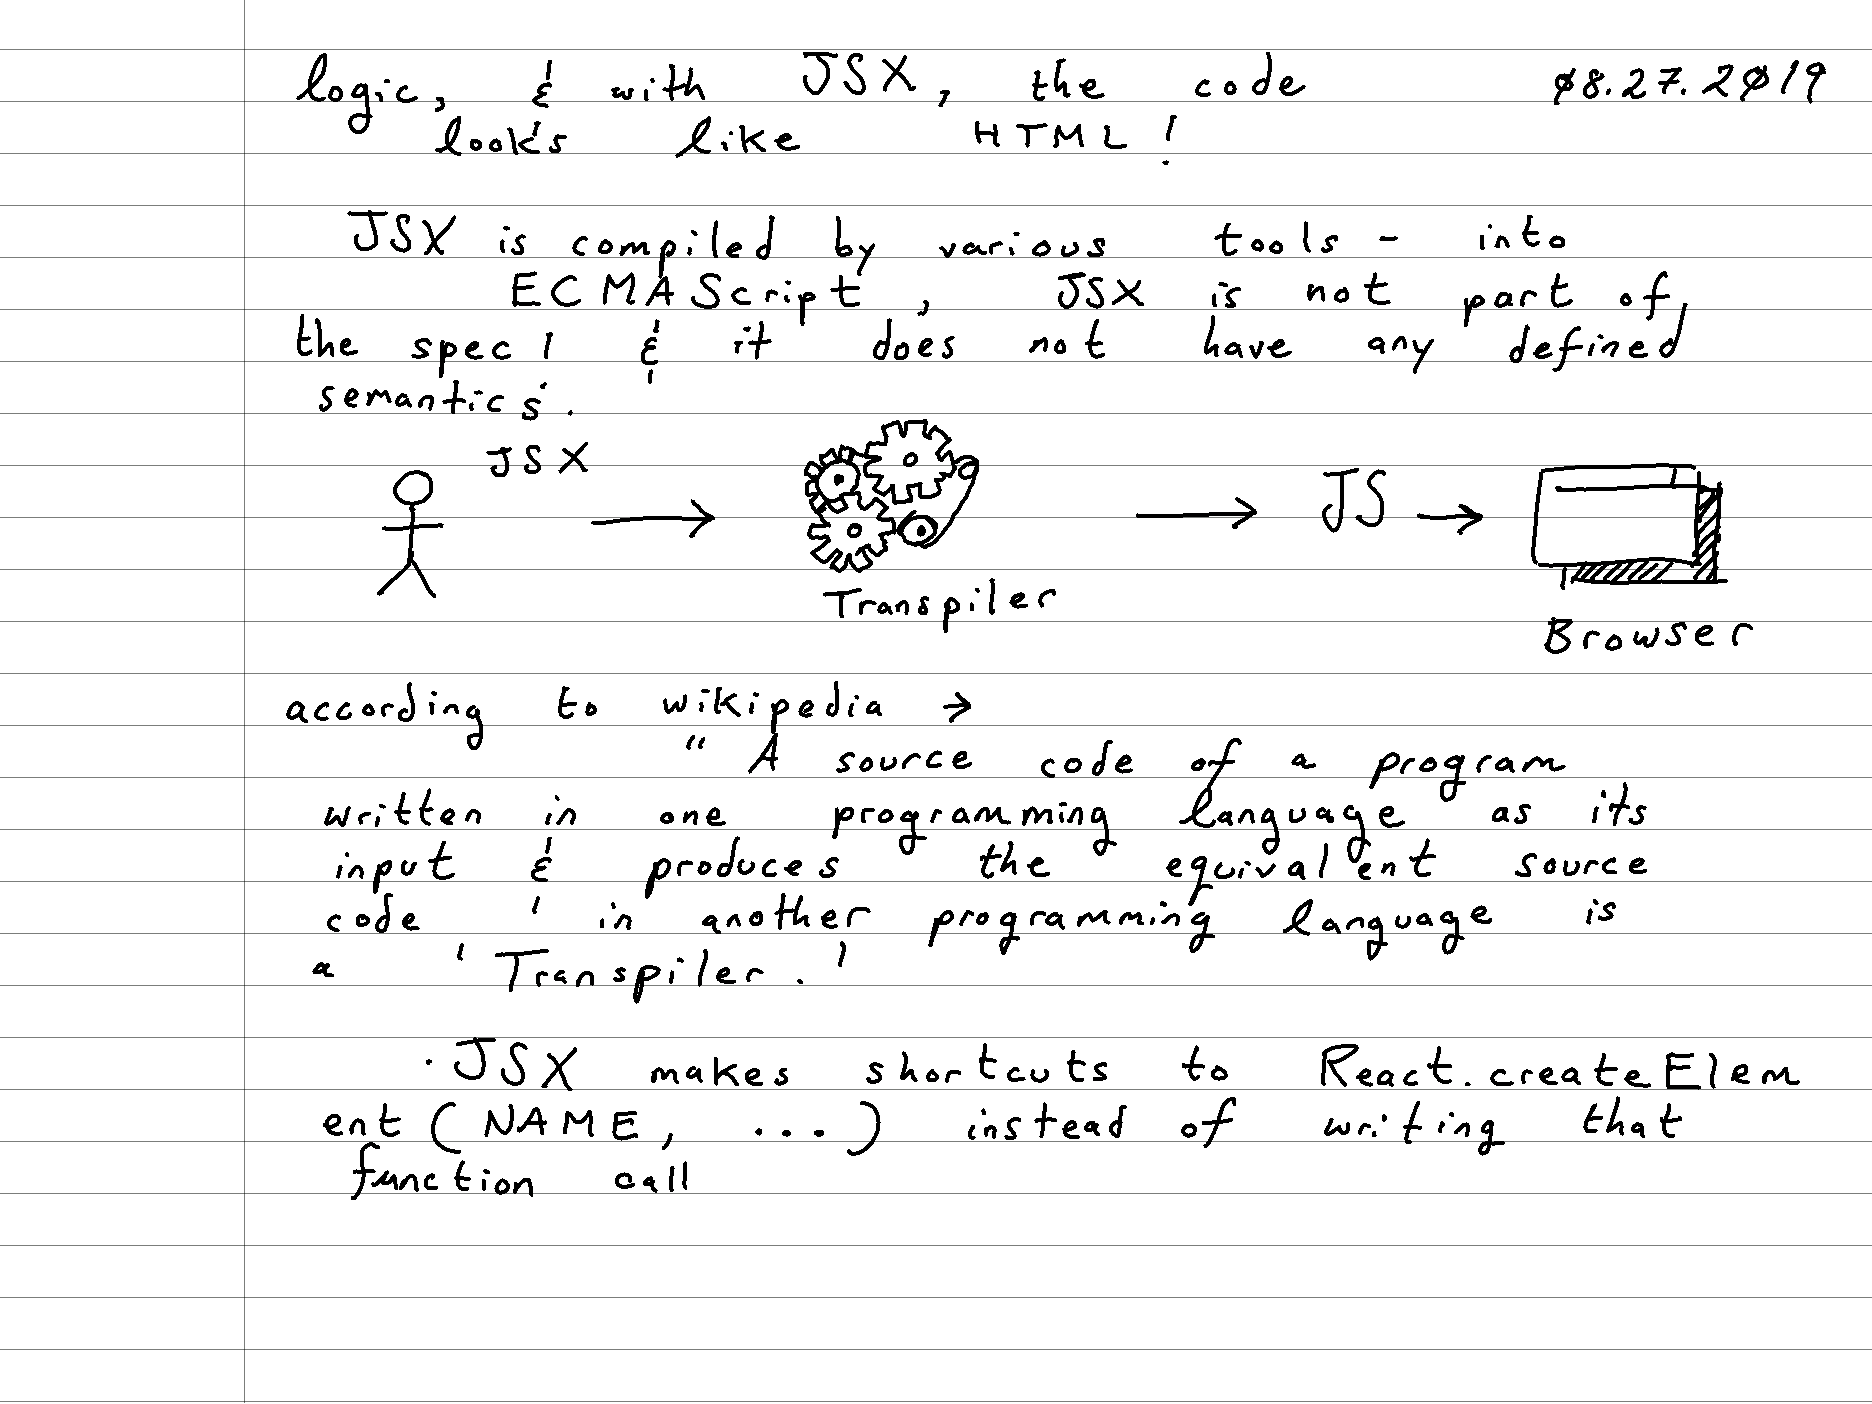 logic, & with JSX, the code 08.27.2019
looks like HTML!
JSX is compiled by various tools - into
ECMAScript, JSX is not part of
the spec! & it does not have any defined
semantics.
JSX
JS
Transpiler
Browser
according to wikipedia →
" A source code of a program
written in one programming language as its
input & produces the equivalent source
code ' in another programming language is
a ' Transpiler. '
· JSX makes shortcuts to React.createElem
ent (NAME, ...) instead of writing that
function call